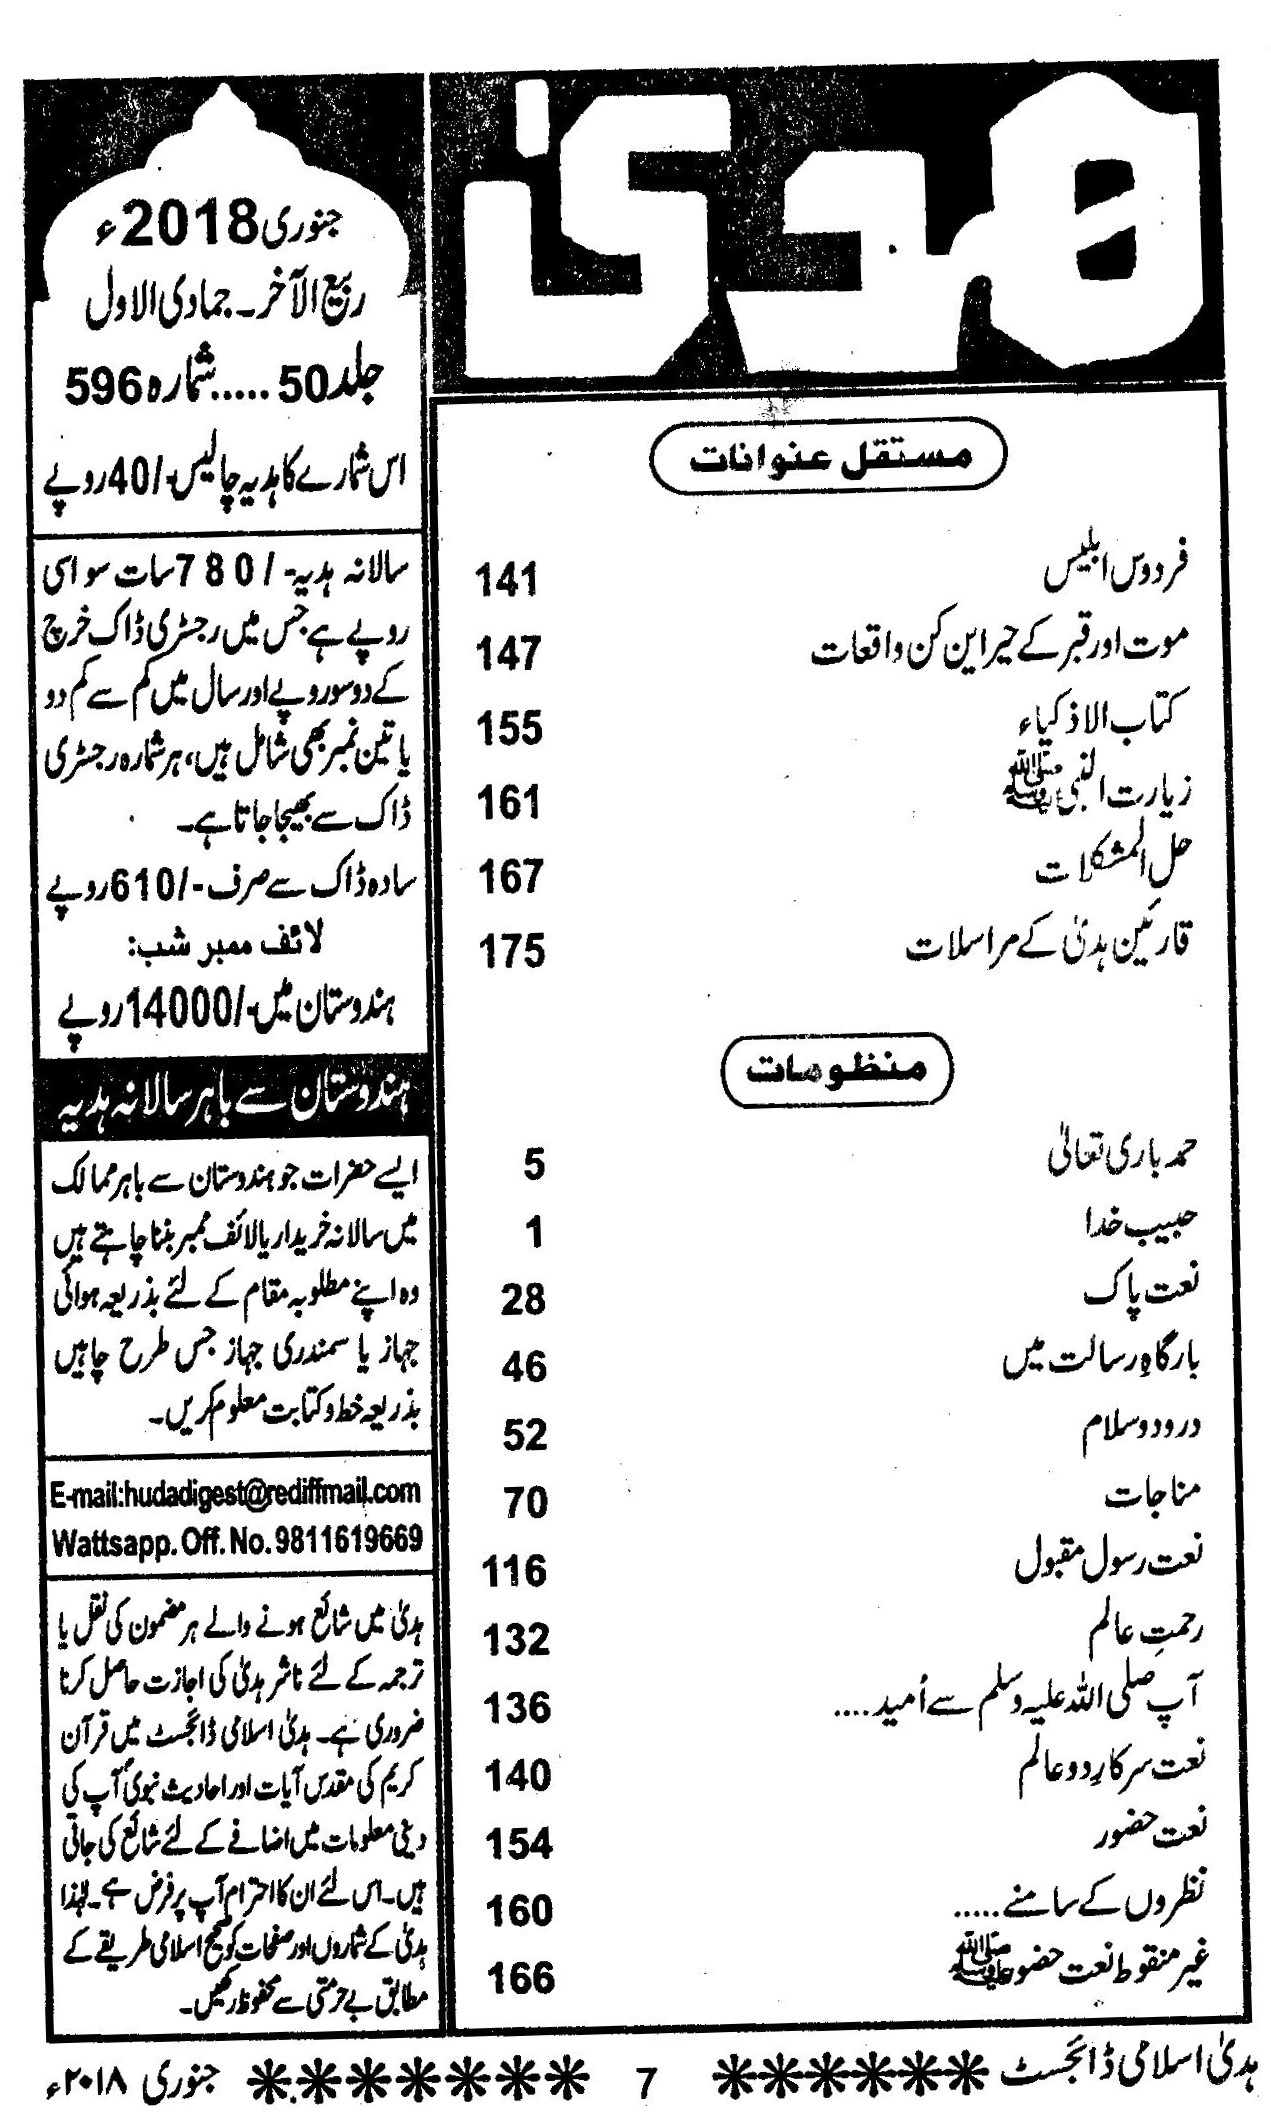 ھدیٰ
مستقل عنوانات
فردوس ابلیس 141
موت اور قبر کے حیراین کن واقعات 147
کتاب الاذکیاء 155
زیارت النبی ﷺ 161
حل المشکلات 167
قارئین ہدیٰ کے مراسلات 175
منظومات
حمد باری تعالیٰ 5
حبیب خدا 1
نعت پاک 28
بارگاہِ رسالت میں 46
درود و سلام 52
مناجات 70
نعت رسول مقبول 116
رحمتِ عالم 132
آپ صلی اللہ علیہ وسلم سے اُمید.... 136
نعت سرکارِ دو عالم 140
نعت حضور 154
نظروں کے سامنے..... 160
غیر منقوط نعت حضور ﷺ 166
جنوری 2018ء
ربیع الآخر۔ جمادی الاول
جلد 50.....شمارہ 596
اس شمارے کا ہدیہ چالیس -/40 روپے
سالانہ ہدیہ -/780 سات سو اسی
روپے ہے جس میں رجسٹری ڈاک خرچ
کے دو سو روپے اور سال میں کم سے کم دو
یا تین نمبر بھی شامل ہیں، ہر شمارہ رجسٹری
ڈاک سے بھیجا جاتا ہے۔
سادہ ڈاک سے صرف -/610 روپے
لائف ممبر شب:
ہندوستان میں -/14000 روپے
ہندوستان سے باہر سالانہ ہدیہ
ایسے حضرات جو ہندوستان سے باہر ممالک
میں سالانہ خریدار یا لائف ممبر بننا چاہتے ہیں
وہ اپنے مطلوبہ مقام کے لئے بذریعہ ہوائی
جہاز یا سمندری جہاز جس طرح چاہیں
بذریعہ خط و کتابت معلوم کریں۔
E-mail:hudadigest@rediffmail.com
Wattsapp. Off. No. 9811619669
ہدیٰ میں شائع ہونے والے ہر مضمون کی نقل یا
ترجمہ کے لئے ناشر ہدیٰ کی اجازت حاصل کرنا
ضروری ہے۔ ہدیٰ اسلامی ڈائجسٹ میں قرآن
کریم کی مقدس آیات اور احادیث نبویؐ آپ کی
دینی معلومات میں اضافے کے لئے شائع کی جاتی
ہیں۔ اس لئے ان کا احترام آپ پر فرض ہے۔ لہٰذا
ہدیٰ کے شماروں اور صفحات کو صحیح اسلامی طریقے کے
مطابق بے حرمتی سے محفوظ رکھیں۔
ہدیٰ اسلامی ڈائجسٹ 7 جنوری ۲۰۱۸ء